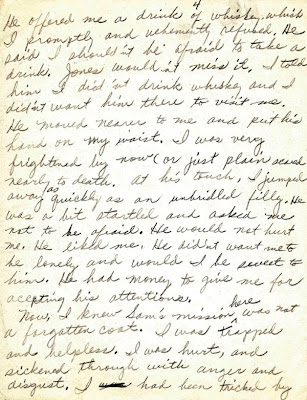 4
He offered me a drink of whiskey which
I promptly and vehemently refused. He
said I should'nt be afraid to take a
drink. Jones would'nt miss it. I told
him I did'nt drink whiskey and I
did'nt want him there to visit me.
He moved nearer to me and put his
hand on my waist. I was very
frightened by now (or just plain scared
nearly to death. At his touch, I jumped
away as quickly as an unbridled filly. He
was a bit startled and asked me
not to be afraid. He would not hurt
me. He liked me. He did'nt want me to
be lonely and would I be sweet to
him. He had money to give me for
accepting his attentions.
Now, I knew Sam's mission here was not
a forgotten coat. I was trapped
and helpless. I was hurt, and
sickened through with anger and
disgust. I had been tricked by